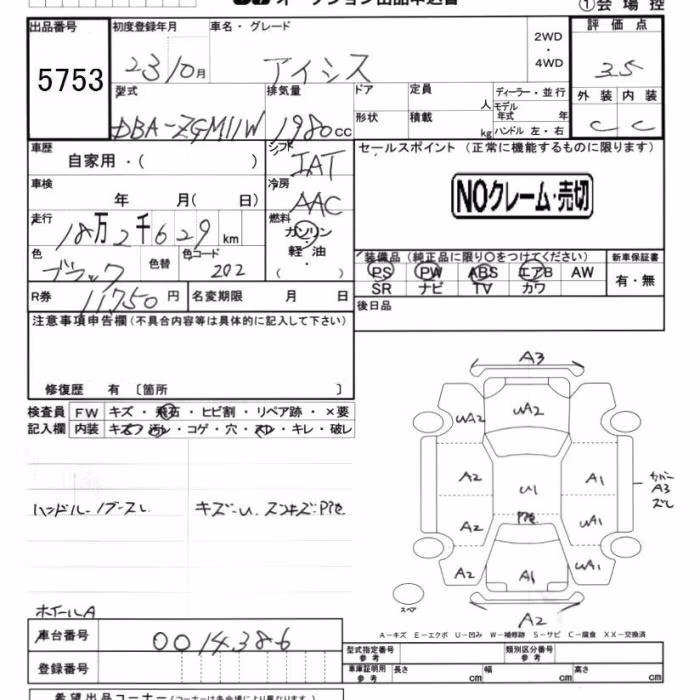 ①会場控
出品番号 初度登録年月 車名・グレード 2WD・4WD 評価点
5753 23 10月 アイシス 3.5
型式 排気量 ドア 定員 人 ディーラー・並行 外装 内装
モデル年式 年
DBA-ZGM11W 1980cc 形状 積載 kg ハンドル 左・右 C C
車歴 シフト セールスポイント (正常に機能するものに限ります)
自家用・( ) IAT
車検 冷房 NOクレーム・売切
年 月( 日) AAC
走行 燃料
18万2千629km ガソリン・軽油・( )
色 色替 色コード 装備品(純正品に限り○をつけてください) 新車保証書
ブラック 202 PS PW ABS エアB AW 有・無
SR ナビ TV カワ
R券 11,750円 名変期限 月 日 後日品
注意事項申告欄(不具合内容等は具体的に記入して下さい)
修復歴 有 〔箇所 〕
検査員 FW キズ・飛石・ヒビ割・リペア跡・×要
記入欄 内装 キズ 汚レ・コゲ・穴・スレ・キレ・破レ
A3
WA2 WA2
A2 U1 A1 A3
ズレ
A2 WA1
A2 A1 WA1
スペア
A2
ホイールA
A-キズ E-エクボ U-凹み W-補修跡 S-サビ C-腐食 XX-交換済
車台番号 0014386
型式指定番号 参考 類別区分番号 参考
登録番号 車庫証明用 参考 長さ cm 幅 cm 高さ cm
希望出品コーナー